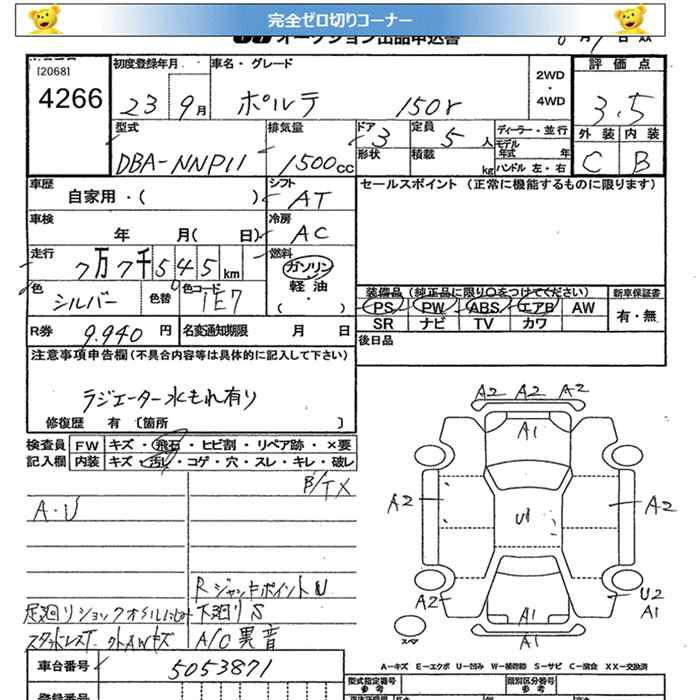 完全ゼロ切りコーナー
オークション出品申込書
[2068]
4266
初度登録年月
23 9月
車名・グレード
ポルテ 150r
2WD
・
4WD
評価点
3.5
外装 内装
C B
型式
DBA-NNP11
排気量
1500cc
ドア 3
形状
定員 5人
積載 kg
ディーラー・並行
モデル年式 年
ハンドル 左・右
車歴
自家用・( )
シフト
AT
セールスポイント (正常に機能するものに限ります)
車検
年 月( 日)
冷房
AC
走行
7万7千545km
燃料
ガソリン
軽油
( ・ )
色
シルバー
色替
色コード
1E7
装備品 (純正品に限り○をつけてください)
新車保証書
PS PW ABS エアB AW
SR ナビ TV カワ
有・無
R券 9.940円
名変通知期限 月 日
後日品
注意事項申告欄(不具合内容等は具体的に記入して下さい)
ラジエーター水もれ有り
修復歴 有 〔箇所 〕
検査員
記入欄
FW キズ・飛石・ヒビ割・リペア跡・×要
内装 キズ・汚レ・コゲ・穴・スレ・キレ・破レ
ATX
A・U
RジャッキポイントU
下廻りS
A/C異音
A2 A2 A2
A1
A2
U1
A2
A2
U2
A1
A1
A1
A-キズ E-エクボ U-凹み W-補修跡 S-サビ C-腐食 XX-交換済
車台番号
5053871
登録番号
型式指定番号
参考
類別区分番号
参考